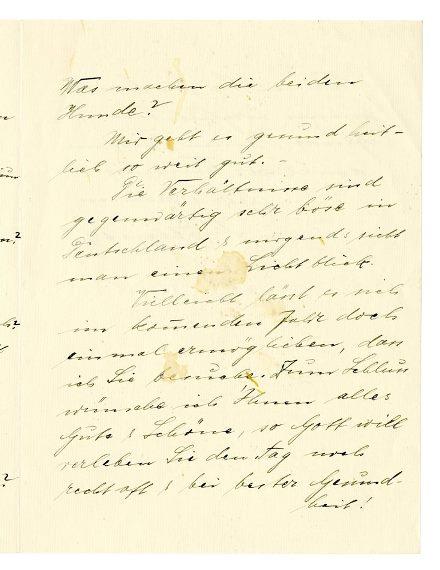 Was machen die beiden
Hunde?
Mir geht es gesundheit-
lich so weit gut.-
Die Verhältnisse sind
gegenwärtig sehr böse in
Deutschland & nirgends sieht
man einen Lichtblick.
Vielleicht lässt es sich
im komenden Jahr doch
einmal ermöglichen, dass
ich Sie besuche. Zum Schluss
wünsche ich Ihnen alles
Gute & Schöne, so Gott will
verleben Sie den Tag noch
recht oft & bei bester Gesund-
heit!